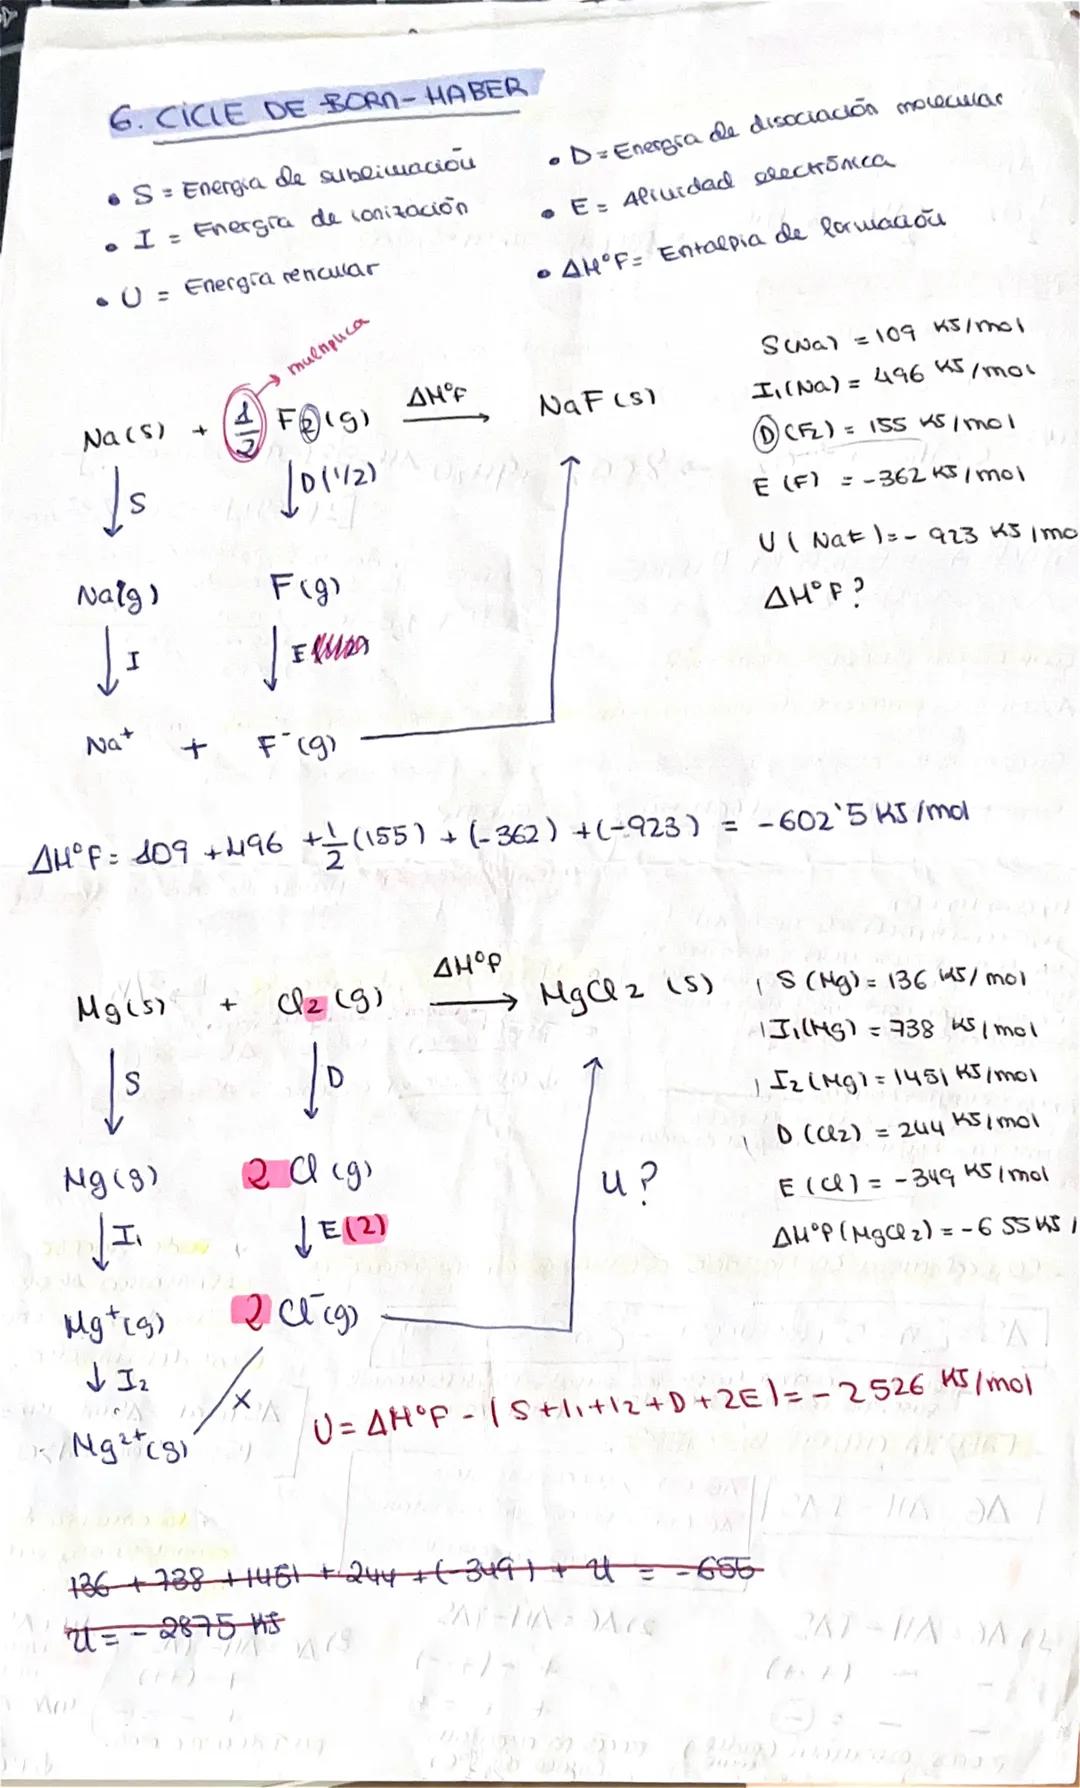 6. CICLE DE BORN-HABER
• S = Energia de sublimación
• D = Energía de disociación molecular
• I = Energía de ionización
• E = Afinidad electrónica
• U = Energía rencular
• ΔH°F = Entalpia de formación
multiplica
Na(s) + 1/2 F2(g) ΔH°F → NaF(s)
↓ S ↓ D(1/2)
Na(g) F(g)
↓ I ↓ E
Na+ + F-(g)
S(Na) = 109 KJ/mol
I1(Na) = 496 KJ/mol
D(F2) = 155 KJ/mol
E(F) = -362 KJ/mol
U(NaF) = -923 KJ/mo
ΔH°F?
ΔH°F = 109 + 496 + 1/2 (155) + (-362) + (-923) = -602'5 KJ/mol
Mg(s) + Cl2(g) ΔH°F → MgCl2 (s)
↓ S ↓ D
Mg(g) 2 Cl(g) U?
↓ I1 ↓ E(2)
Mg+(g) 2 Cl-(g)
↓ I2 x
Mg2+(g)
S(Mg) = 136 KJ/mol
I1(Mg) = 738 KJ/mol
I2(Mg) = 1451 KJ/mol
D(Cl2) = 244 KJ/mol
E(Cl) = -349 KJ/mol
ΔH°F(MgCl2) = -655 KJ/
U = ΔH°F - (S+I1+I2+D+2E) = -2526 KJ/mol
136 + 738 + 1451 + 244 + (-349) + U = -655
U = -2875 KJ